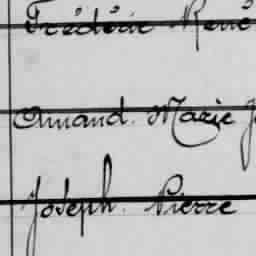 Frédéric René
Amand. Marie J
Joseph. Pierre